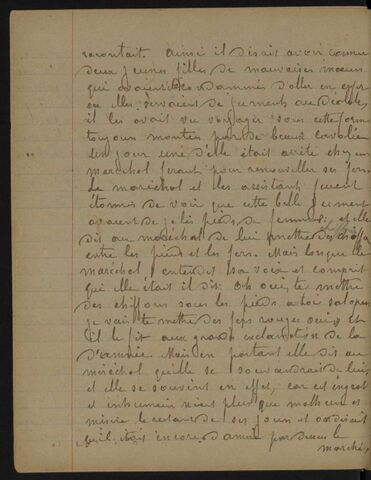 racontait. Ainsi il disait avoir connu
deux jeunes filles de mauvaises mœurs
qui avaient condamnées d'aller en enfer
ou elles servaient de juments au diable
il les avait vu voyager sous cette forme
toujours montées par de beaux cavaliers
Un jour une d'elle était arrêté chez un
maréchal ferant pour renouveller ses fers.
Le maréchal et les assistant furent
étonnés de voir que cette belle jument
avaient de jolis pieds de femme et elle
dit au maréchal de lui mettre des chiffons
entre les pieds et les fers. Mais lorsque le
maréchal entendit sa voix et comprit
qui elle était il dit. Oh oui, te mettre
des chiffons sous les pieds, a toi salope
je vais te mettre des fers rouges oui. Et
il le fit aux grande exclamation de la
damnée. Mais en partant elle dit au
maréchal quelle se souviendrait de lui,
et elle se souvint en effet, car cet ingrat
et inhumain n'eut plus que malheur et
misère le restant de ses jours et on disait
qu'il était encore damné par dessus le
marché,